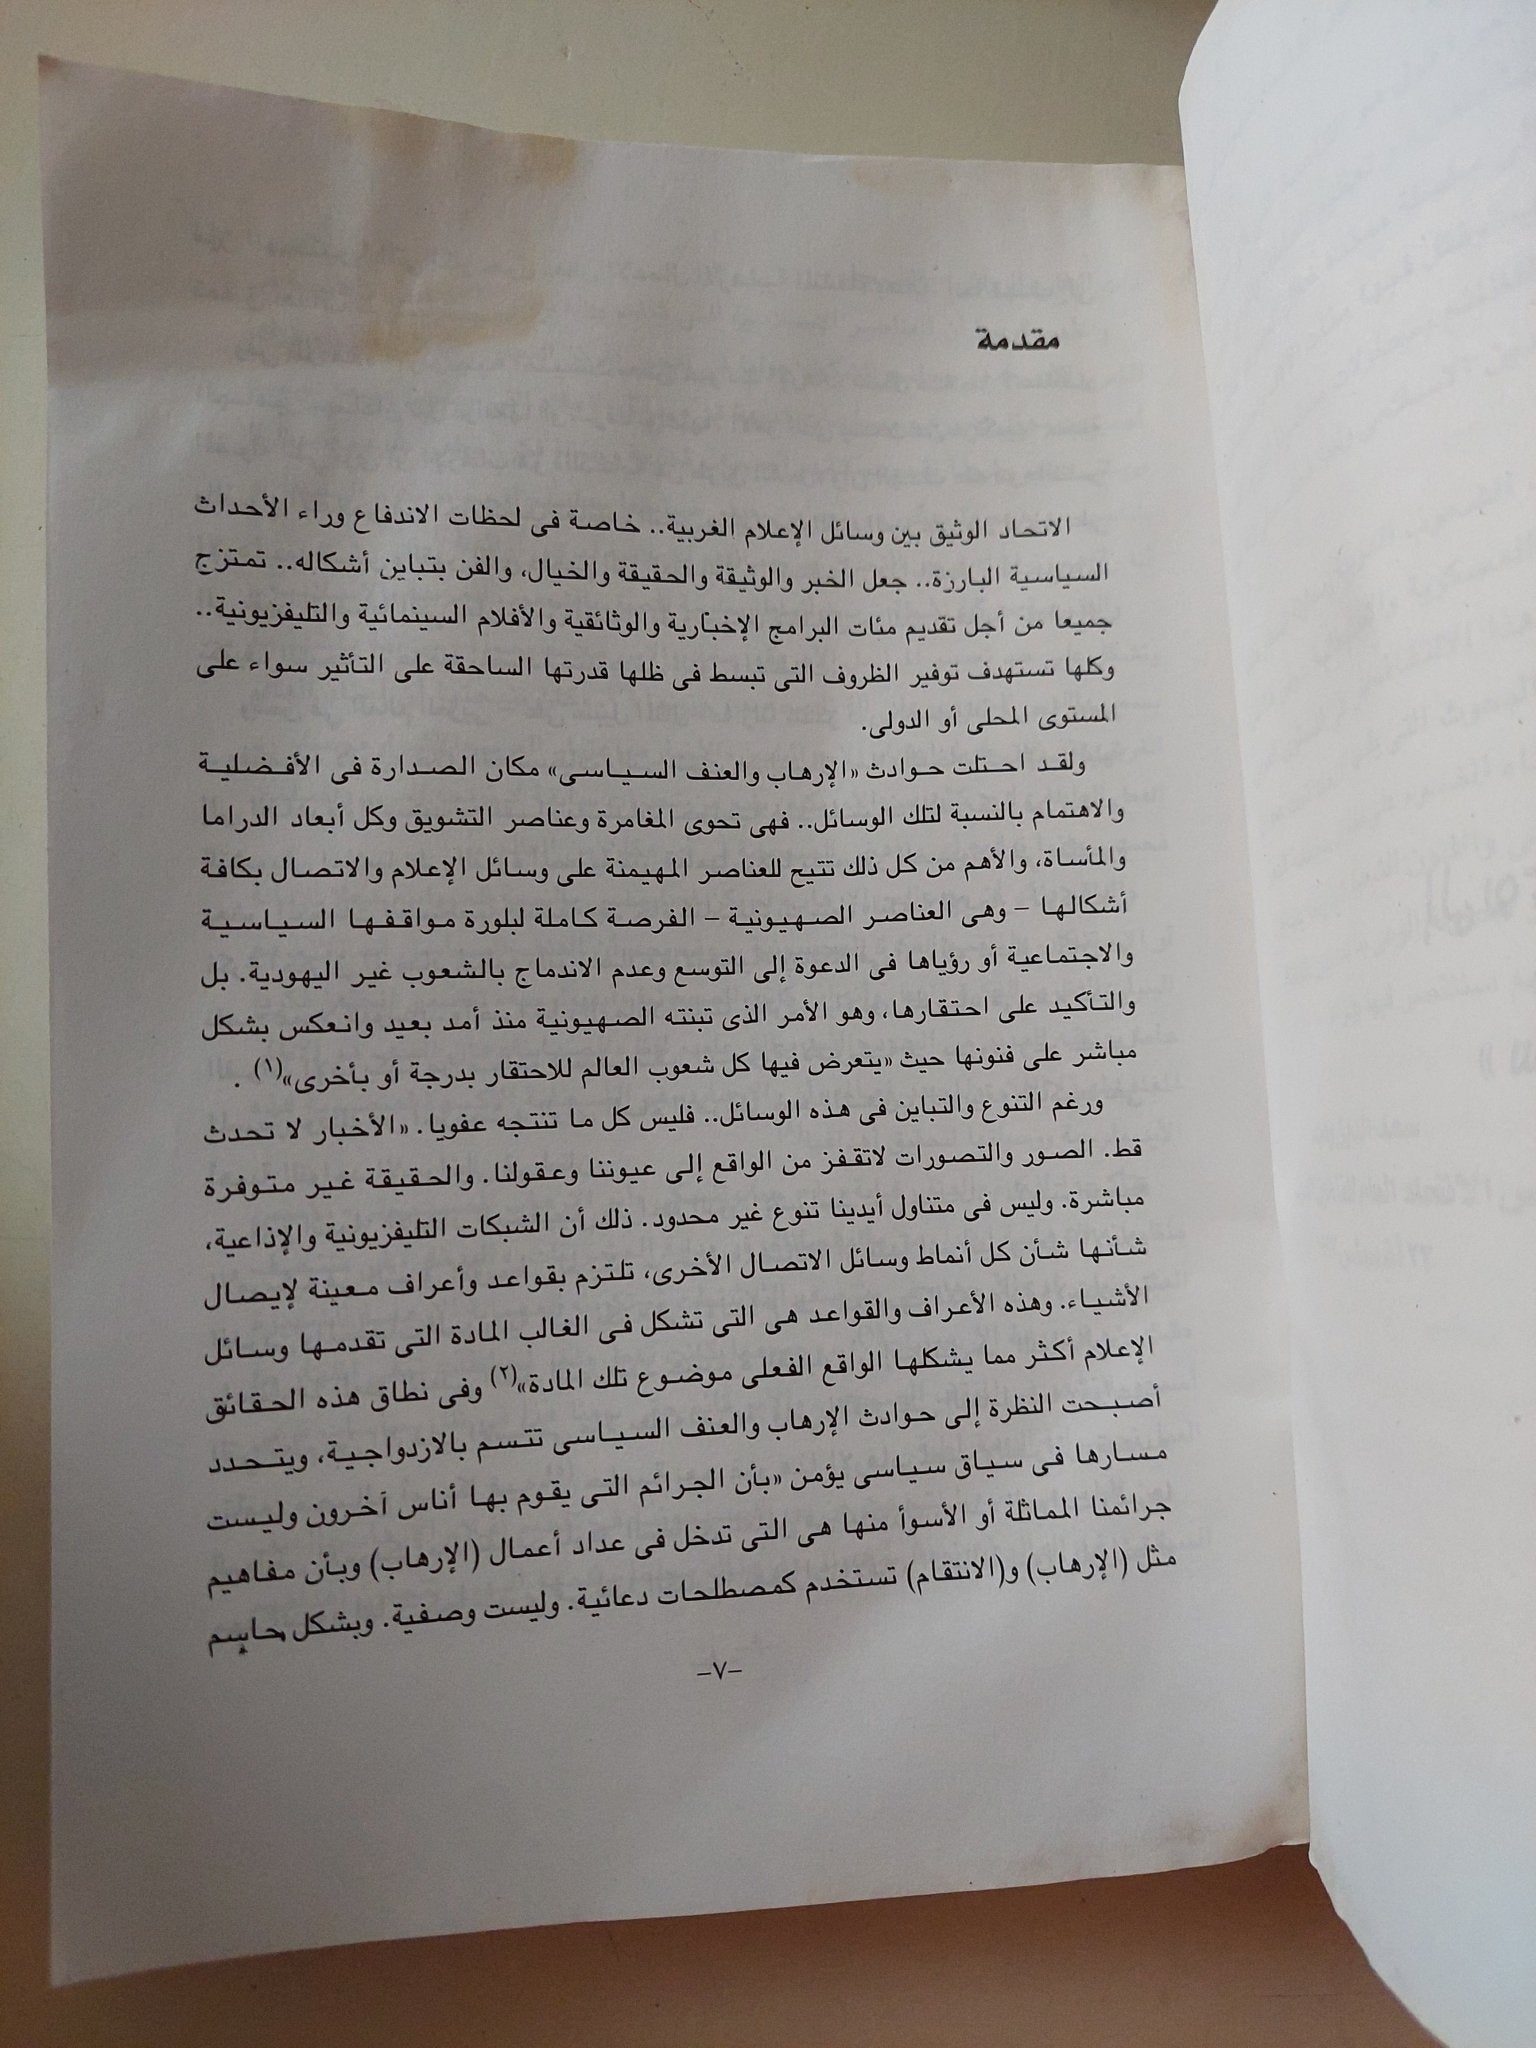 مقدمة
الاتحاد الوثيق بين وسائل الإعلام الغربية.. خاصة فى لحظات الاندفاع وراء الأحداث
السياسية البارزة.. جعل الخبر والوثيقة والحقيقة والخيال، والفن بتباين أشكاله.. تمتزج
جميعا من أجل تقديم مئات البرامج الإخبارية والوثائقية والأفلام السينمائية والتليفزيونية..
وكلها تستهدف توفير الظروف التى تبسط فى ظلها قدرتها الساحقة على التأثير سواء على
المستوى المحلى أو الدولى.
ولقد احتلت حوادث «الإرهاب والعنف السياسى» مكان الصدارة فى الأفضلية
والاهتمام بالنسبة لتلك الوسائل.. فهى تحوى المغامرة وعناصر التشويق وكل أبعاد الدراما
والمأساة، والأهم من كل ذلك تتيح للعناصر المهيمنة على وسائل الإعلام والاتصال بكافة
أشكالها – وهى العناصر الصهيونية – الفرصة كاملة لبلورة مواقفها السياسية
والاجتماعية أو رؤياها فى الدعوة إلى التوسع وعدم الاندماج بالشعوب غير اليهودية. بل
والتأكيد على احتقارها، وهو الأمر الذى تبنته الصهيونية منذ أمد بعيد وانعكس بشكل
مباشر على فنونها حيث «يتعرض فيها كل شعوب العالم للاحتقار بدرجة أو بأخرى»(١) .
ورغم التنوع والتباين فى هذه الوسائل.. فليس كل ما تنتجه عفويا. «الأخبار لا تحدث
قط. الصور والتصورات لاتقفز من الواقع إلى عيوننا وعقولنا. والحقيقة غير متوفرة
مباشرة. وليس فى متناول أيدينا تنوع غير محدود. ذلك أن الشبكات التليفزيونية والإذاعية،
شأنها شأن كل أنماط وسائل الاتصال الأخرى، تلتزم بقواعد وأعراف معينة لإيصال
الأشياء. وهذه الأعراف والقواعد هى التى تشكل فى الغالب المادة التى تقدمها وسائل
الإعلام أكثر مما يشكلها الواقع الفعلى موضوع تلك المادة»(٢) وفى نطاق هذه الحقائق
أصبحت النظرة إلى حوادث الإرهاب والعنف السياسى تتسم بالازدواجية، ويتحدد
مسارها فى سياق سياسى يؤمن «بأن الجرائم التى يقوم بها أناس آخرون وليست
جرائمنا المماثلة أو الأسوأ منها هى التى تدخل فى عداد أعمال (الإرهاب) وبأن مفاهيم
مثل (الإرهاب) و(الانتقام) تستخدم كمصطلحات دعائية. وليست وصفية. وبشكل حاسم
–٧–